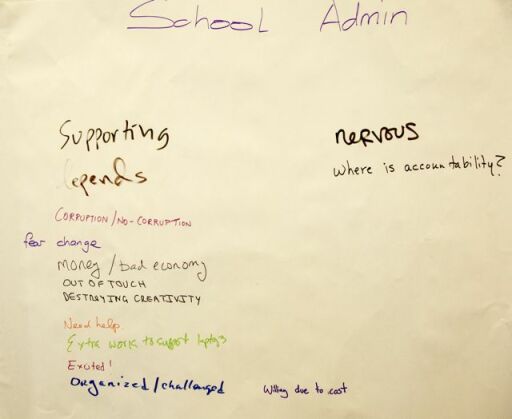 School Admin
Supporting
depends
nervous
Where is accountability?
CORRUPTION/NO-CORRUPTION
fear change
money/bad economy
OUT OF TOUCH
DESTROYING CREATIVITY
Need help.
Extra work to support laptops
Excited!
Organized/challenged
Willing due to cost